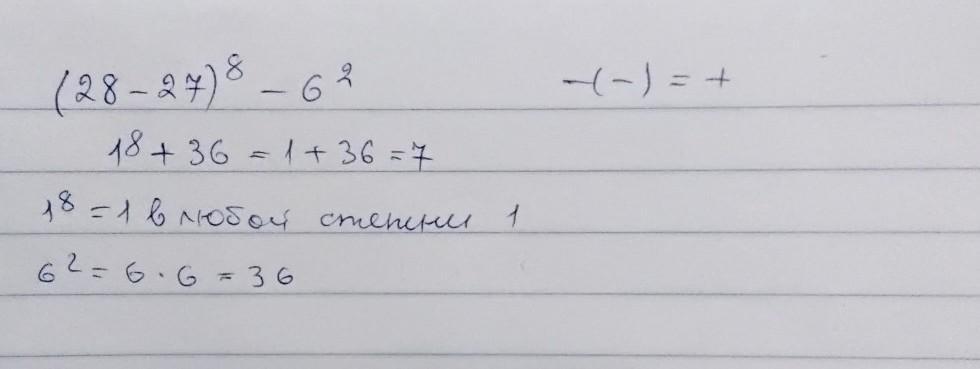 (28-27)⁸ - 6² -(-) = +
1⁸ + 36 = 1 + 36 = 7
1⁸ = 1 в любой степени 1
6² = 6 · 6 = 36